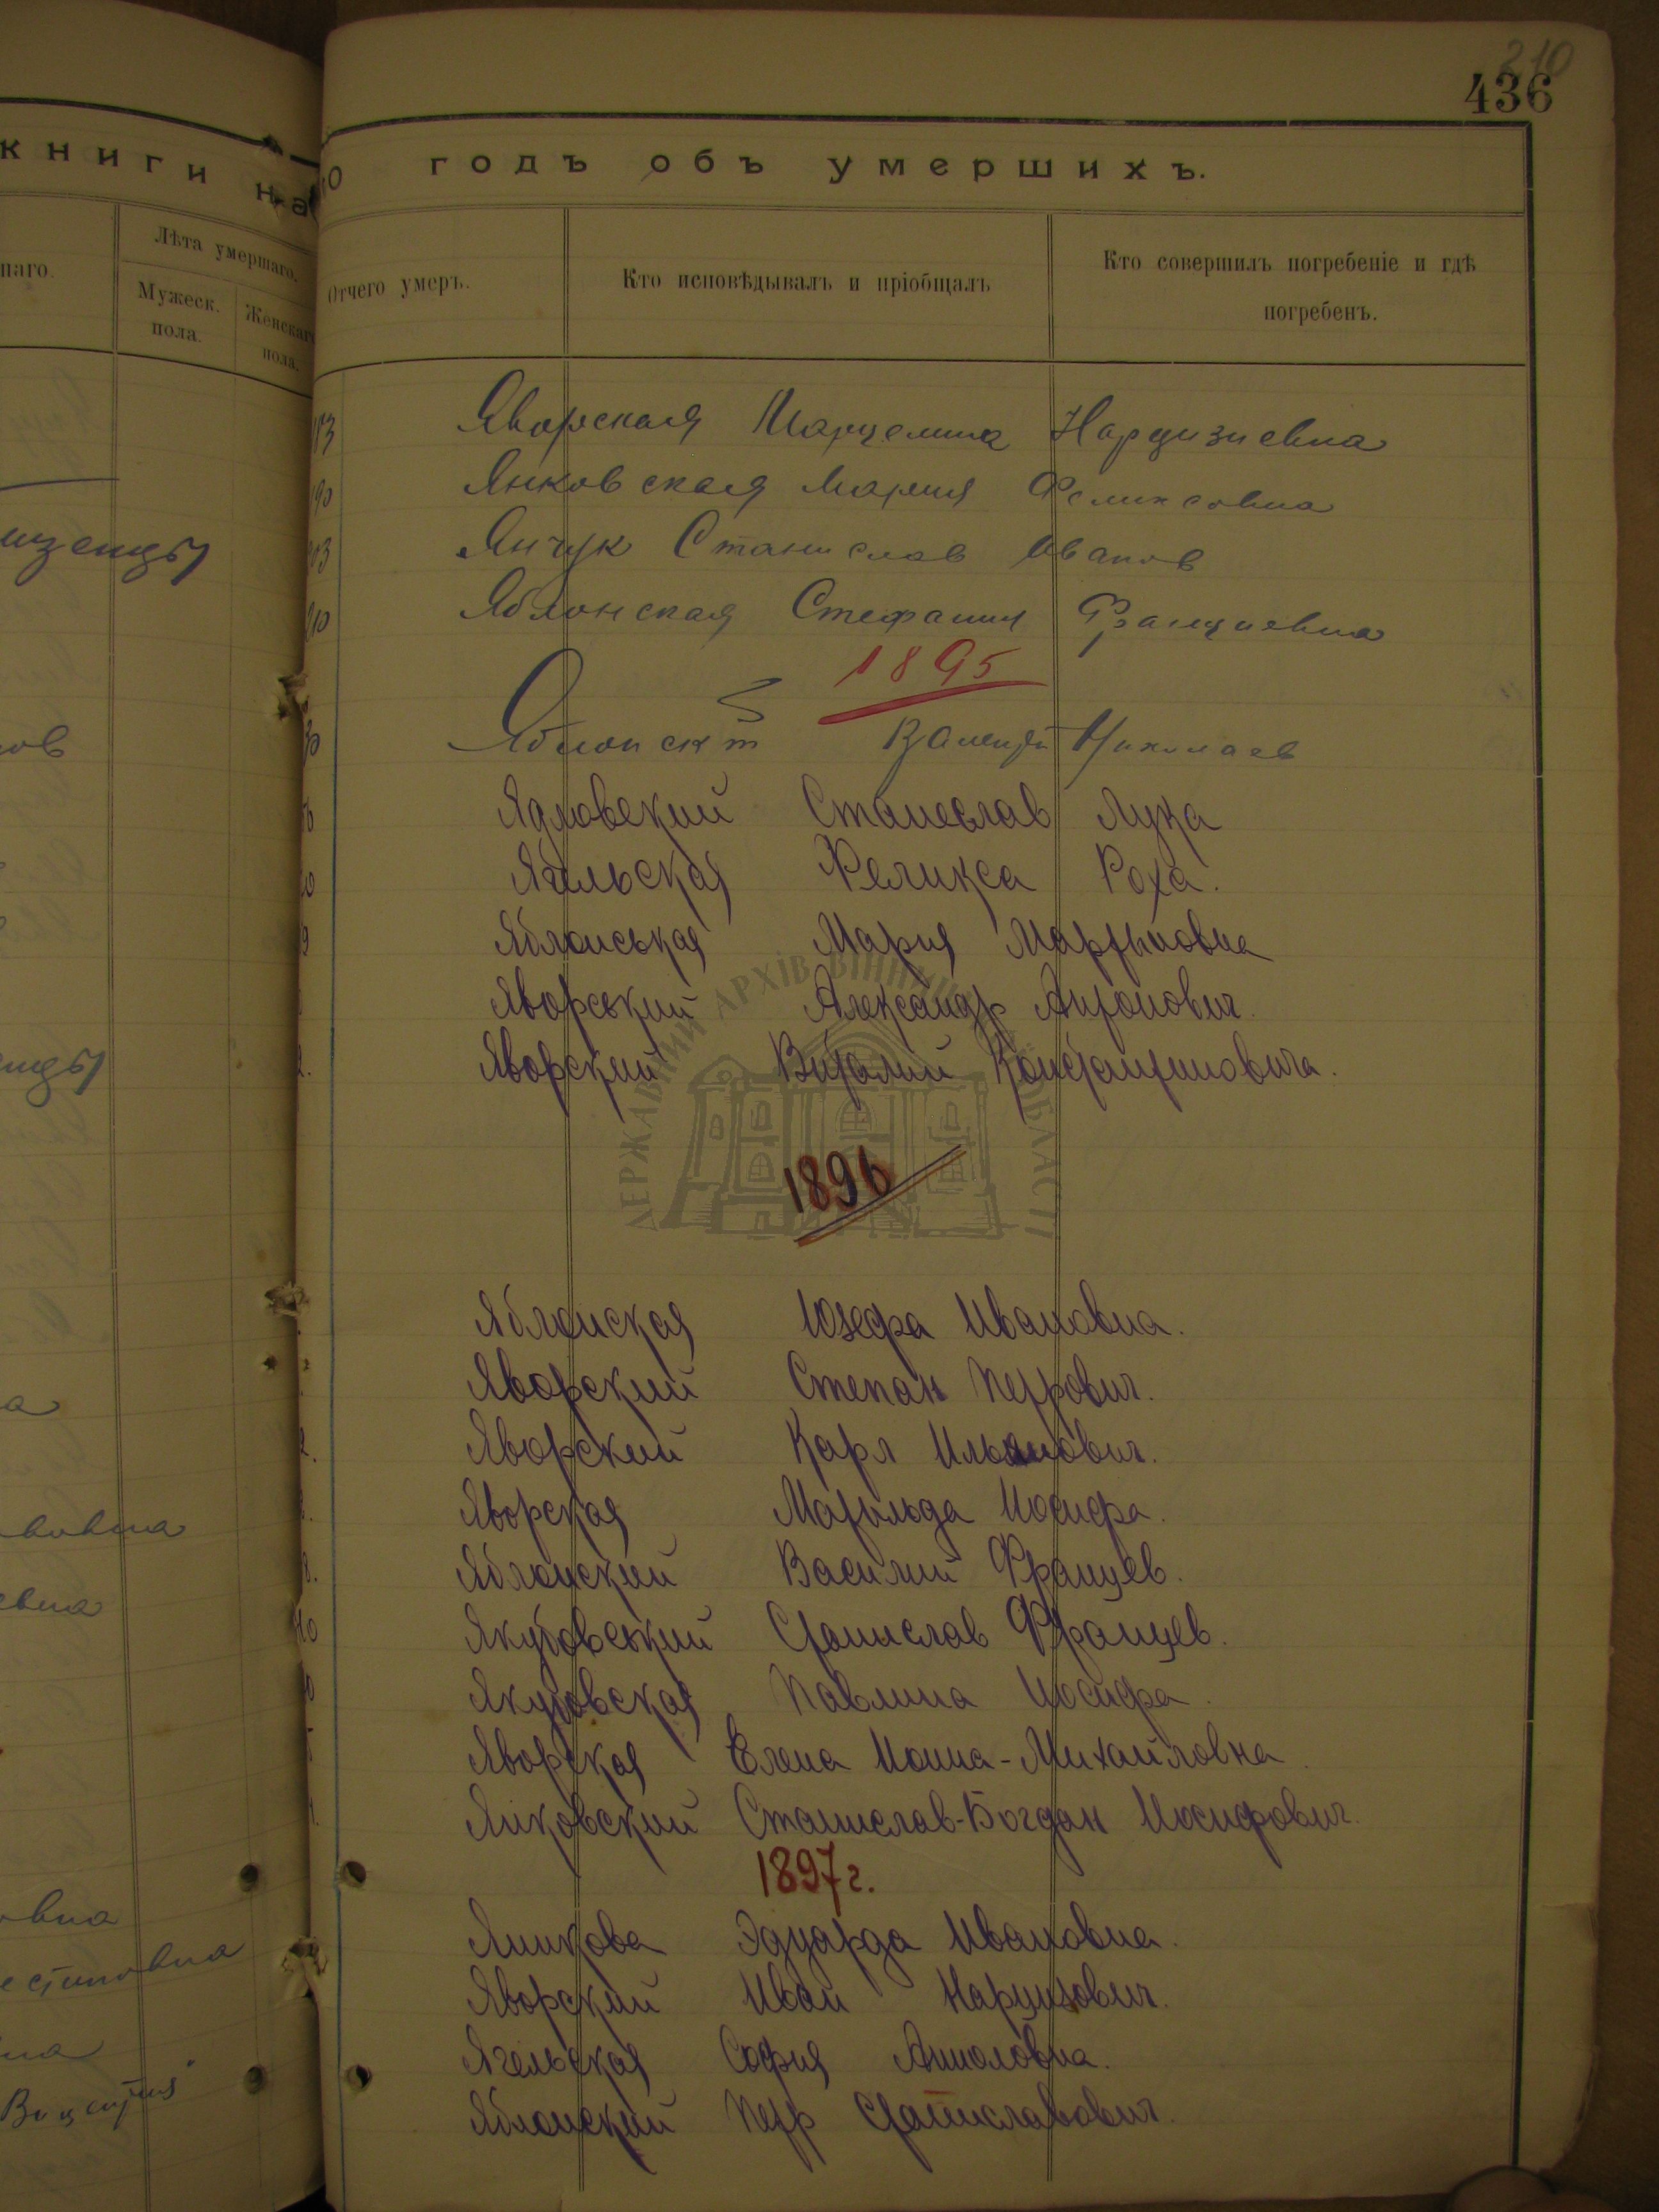 210
436
книги на
10 годъ объ умершихъ.
Лѣта умершаго.
Мужеск. пола.
Женскаго пола.
Отчего умеръ.
Кто исповѣдывалъ и пріобщалъ
Кто совершилъ погребеніе и гдѣ погребенъ.
Яворская Марцелина Нарцизиевна
Янковская Мария Феликсовна
Янчук Станислав Иванов
Яблонская Стефания Францишевна
1895
Яблонскій Николаев
Ядловский Станеслав Лука
Ягельская Феликса Роха.
Яблонськая Мария Мартиновна
Яворський Александр Антонович.
Яворский Виталий Константиновича.
ДЕРЖАВНИЙ АРХІВ ВІННИЦЬКОЇ ОБЛАСТІ
1896
Яблонская Юзефа Ивановна.
Яворский Степан Петрович.
Яворский Карл
Яворская Матильда Иосифа.
Яблонский Василий Францев.
Якубовський Станислав Францев.
Якубовская Павлина Иосифа.
Яворская Елена Иоана-Михайловна.
Янковский Станислав-Богдан Иосифович.
1897 г.
Яшкова Эдуарда Ивановна.
Яворский Иван Нарцизович.
Ягельская София
Яблонский Петр Станиславович.